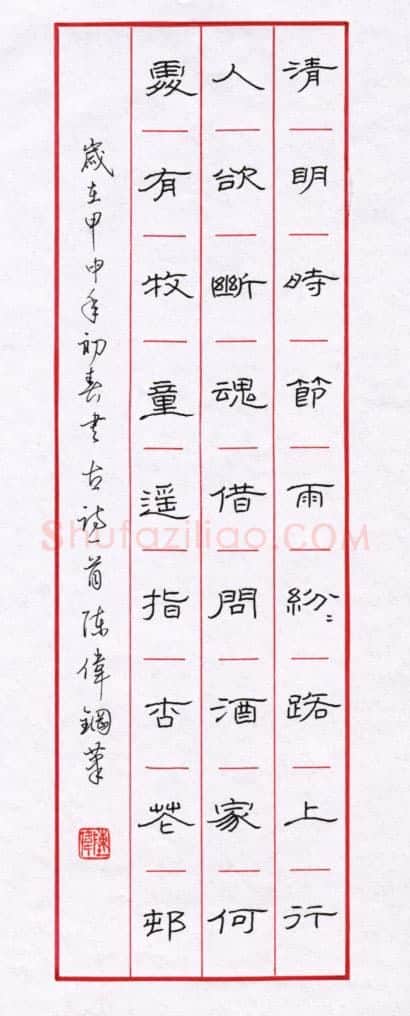 清明時節雨紛〻路上行
人欲斷魂借問酒家何
處有牧童遥指杏花邨
歲在甲申年初春書古詩一首陈偉鋼筆
陳偉
Shufaziliao.COM